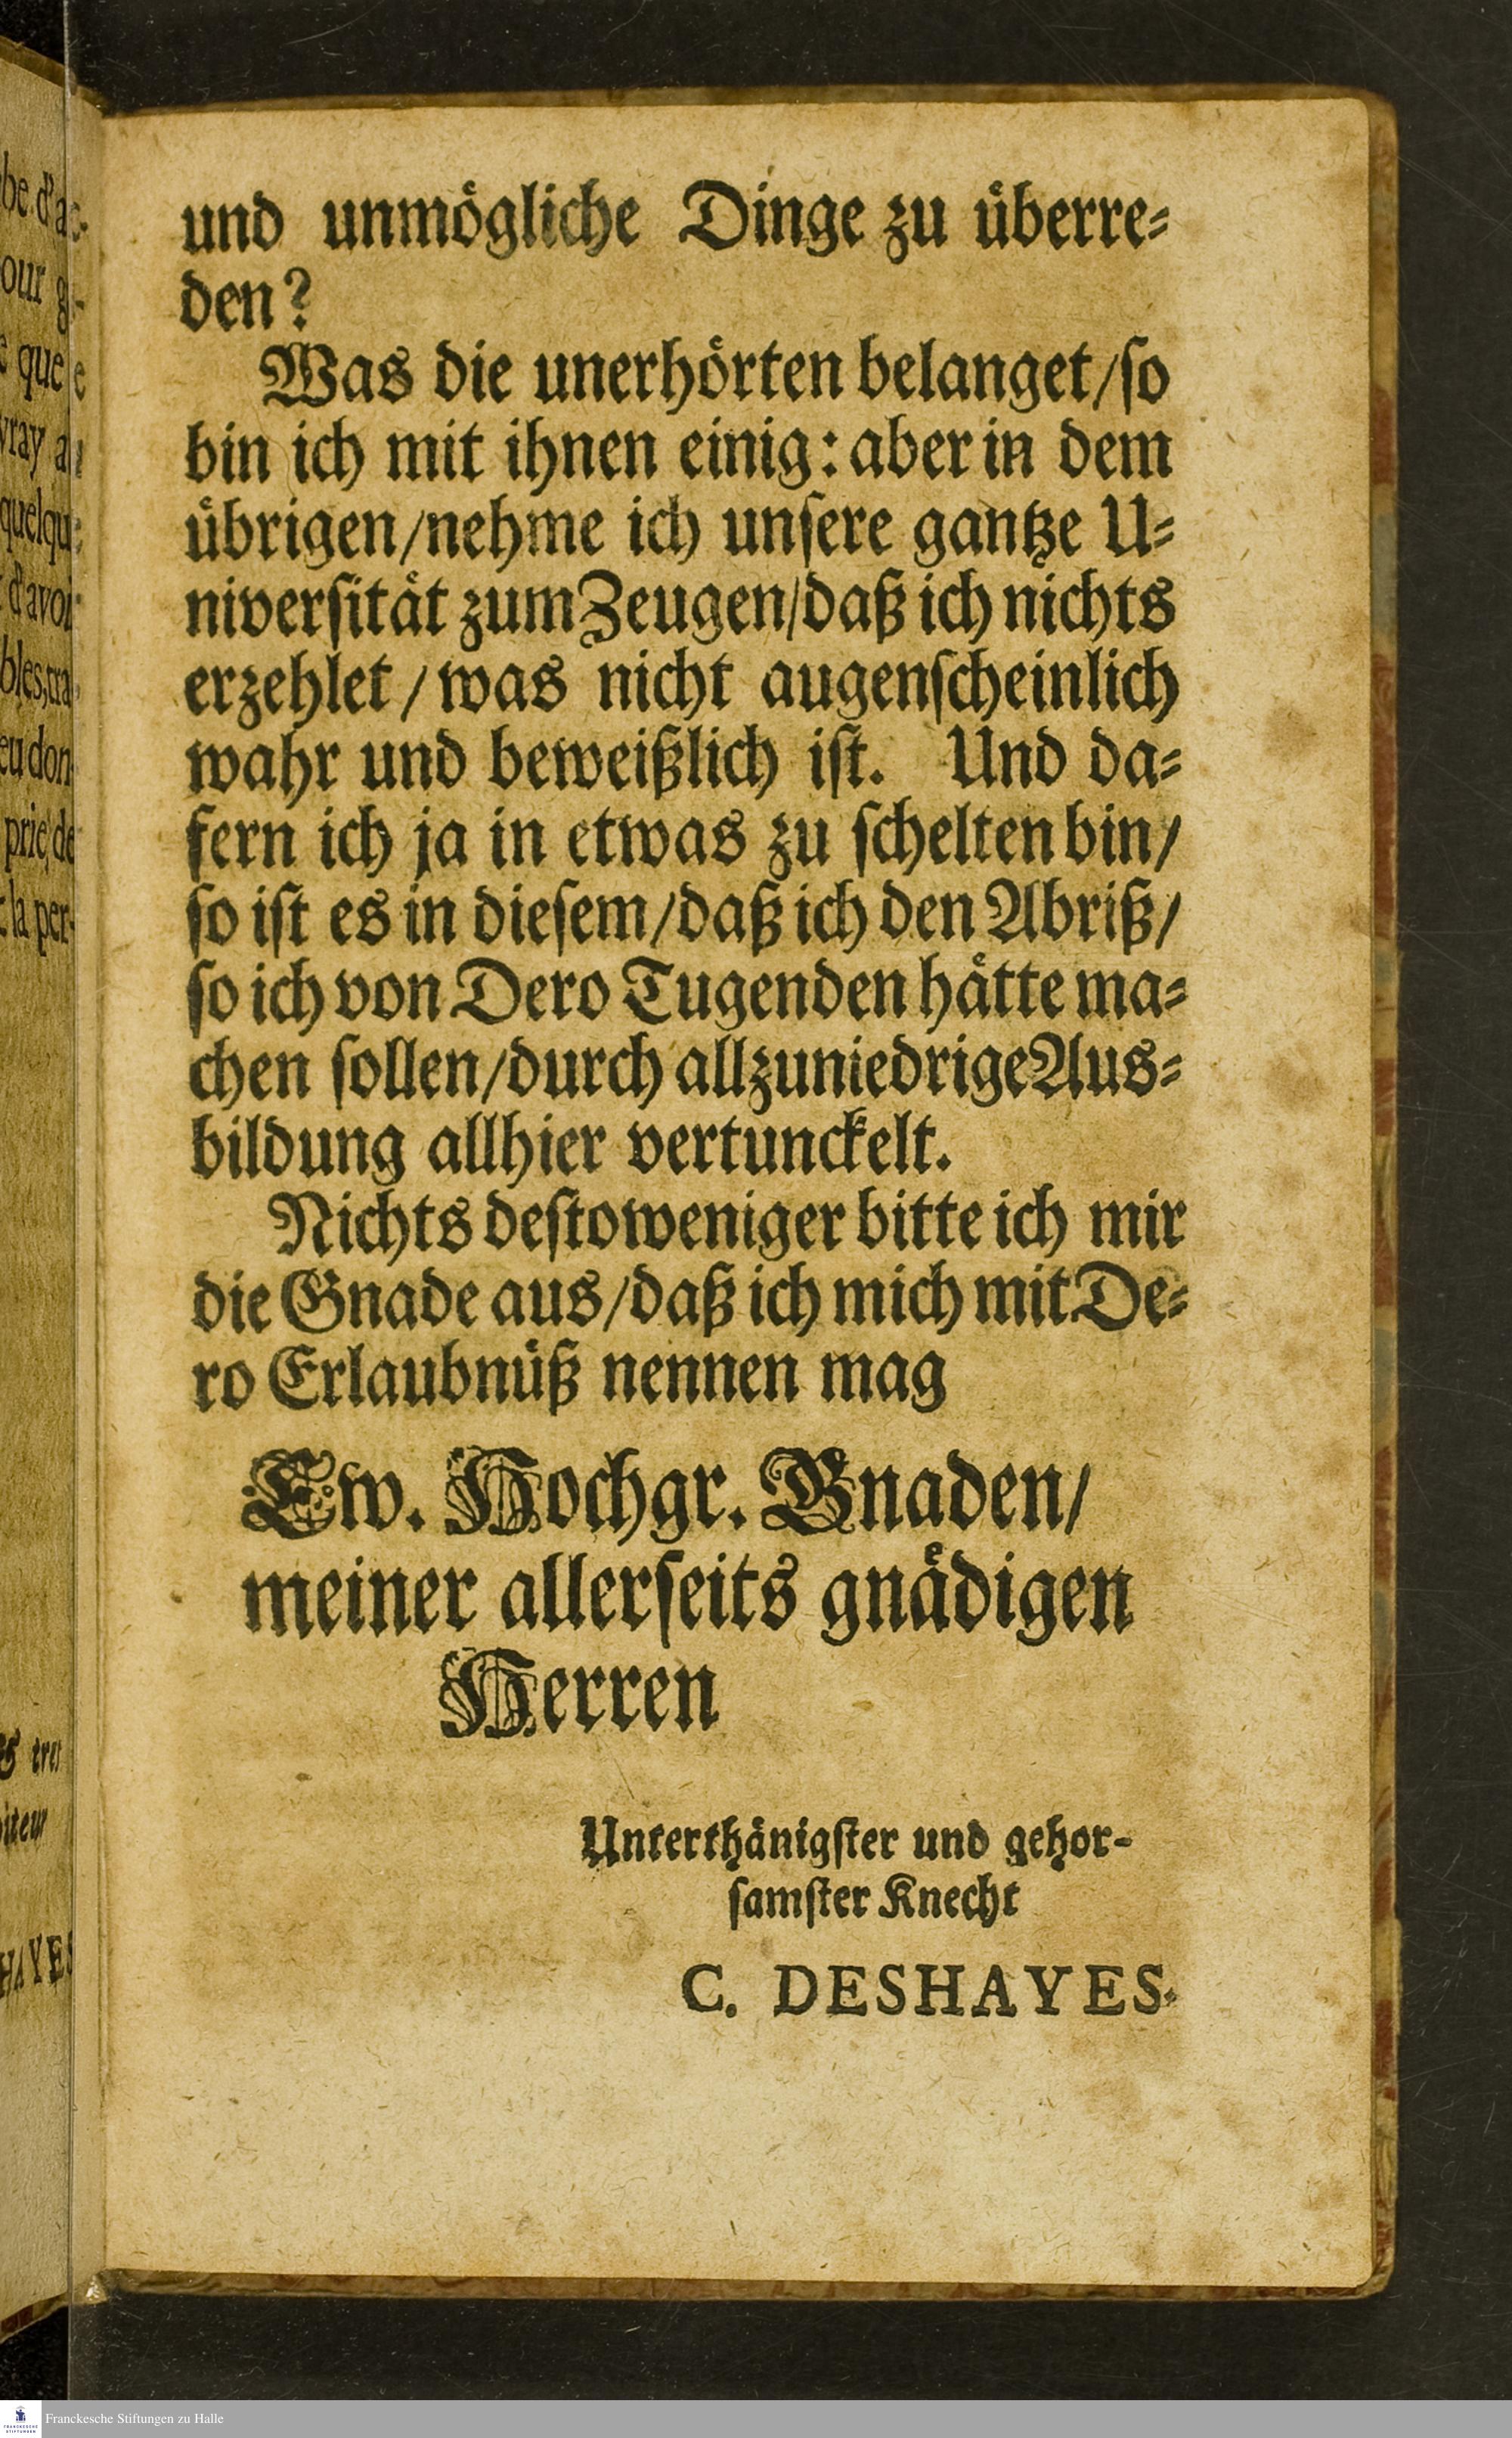 und unmögliche Dinge zu überre-
den?
Was die unerhörten belanget/so
bin ich mit ihnen einig: aber in dem
übrigen/nehme ich unsere gantze U-
niversität zum Zeugen/daß ich nichts
erzehlet/was nicht augenscheinlich
wahr und beweißlich ist. Und da-
fern ich ja in etwas zu schelten bin/
so ist es in diesem/daß ich den Abriß/
so ich von Dero Tugenden hätte ma-
chen sollen/durch allzuniedrige Aus-
bildung allhier vertunckelt.
Nichts destoweniger bitte ich mir
die Gnade aus/daß ich mich mit De-
ro Erlaubnüß nennen mag
Ew. Hochgr. Gnaden/
meiner allerseits gnädigen
Herren
Unterthänigster und gehor-
samster Knecht
C. DESHAYES.
Franckesche Stiftungen zu Halle